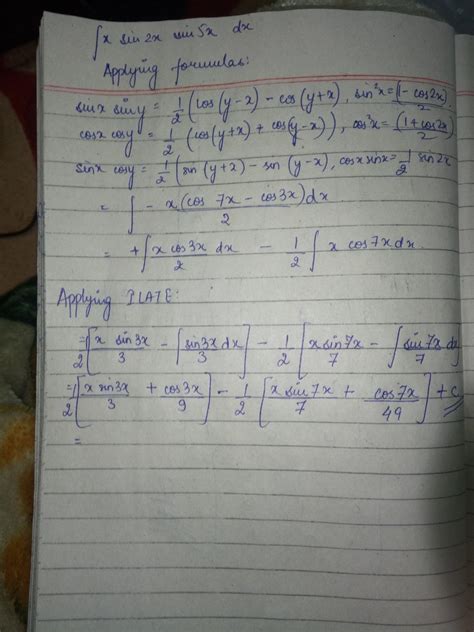 ∫ x sin 2x sin 5x dx
Applying formulas:
sin x sin y = 1/2 (cos (y-x) - cos (y+x), sin²x = (1 - cos 2x)/2
cos x cos y = 1/2 (cos (y+x) + cos (y-x)), cos²x = (1 + cos 2x)/2
sin x cos y = 1/2 (sin (y+x) - sin (y-x), cos x sin x = 1/2 sin 2x
= ∫ - x (cos 7x - cos 3x) dx / 2
= + ∫ x cos 3x / 2 dx - 1/2 ∫ x cos 7x dx.
Applying ILATE:
= 1/2 [x sin 3x / 3 - ∫ sin 3x / 3 dx] - 1/2 [x sin 7x / 7 - ∫ sin 7x / 7 dx]
= 1/2 [x sin 3x / 3 + cos 3x / 9] - 1/2 [x sin 7x / 7 + cos 7x / 49] + c
=